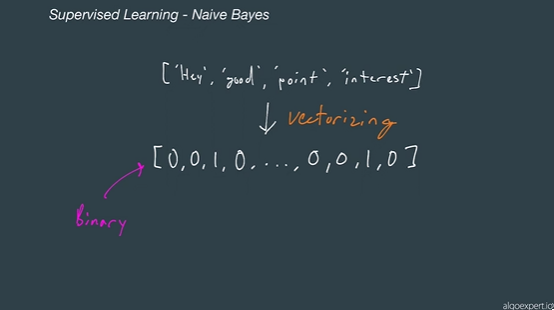 Supervised Learning - Naive Bayes
['Hey', 'good', 'point', 'interest']
vectorizing
[0,0,1,0,...,0,0,1,0]
Binary
algoexpert.io